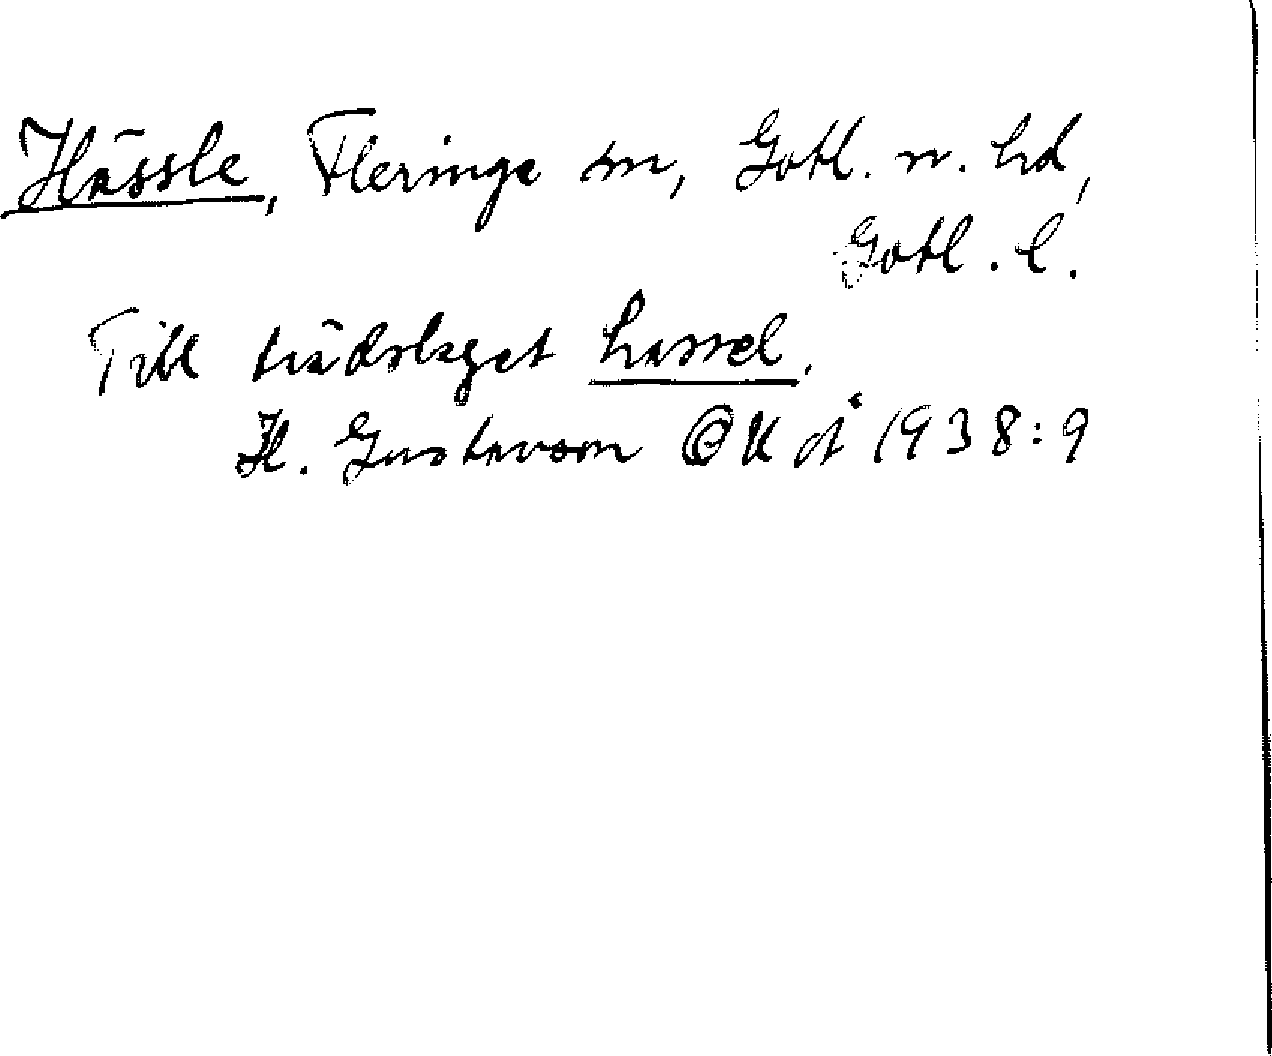 Hässle, Fleringe sn, Gotl. n. hd,
Gotl. l.
Till trädslaget hassel.
H. Gustavson GK å 1938:9